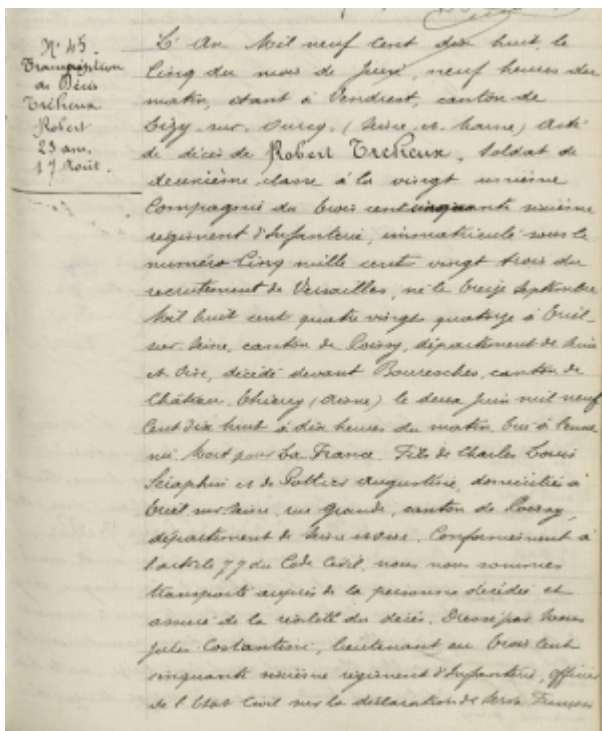 N° 45.
Transcription
de Décès
Tréheux
Robert
23 ans.
17 Août.
L'An Mil neuf cent dix huit, le
cinq du mois de Juin, neuf heures du
matin, étant à Vendrest, canton de
Lizy-sur-Ourcq, (Seine-et-Marne) Acte
de décès de Robert Tréheux, Soldat de
deuxième classe à la vingt unième
Compagnie du trois cent cinquante sixième
régiment d'Infanterie, immatriculé sous le
numéro Cinq mille cent vingt trois du
recrutement de Versailles, né le treize Septembre
Mil huit cent quatre vingt quatorze à Triel-
sur-Seine, canton de Poissy, département de Seine
et Oise, décédé devant Bouresches, canton de
Château-Thierry (Aisne) le deux Juin mil neuf
cent dix huit à dix heures du matin, tué à l'enne-
mi. Mort pour la France. Fils de Charles Louis
Séraphin et de Pottier Augustine, domiciliés à
Triel sur Seine, rue Grande, canton de Poissy,
département de Seine et Oise. Conformément à
l'article 77 du Code Civil, nous nous sommes
transporté auprès de la personne décédée et
assuré de la réalité du décès. Dressé par Nous
Jules Costantini, lieutenant au trois cent
cinquante sixième régiment d'Infanterie, officier
de l'Etat Civil sur la déclaration de François